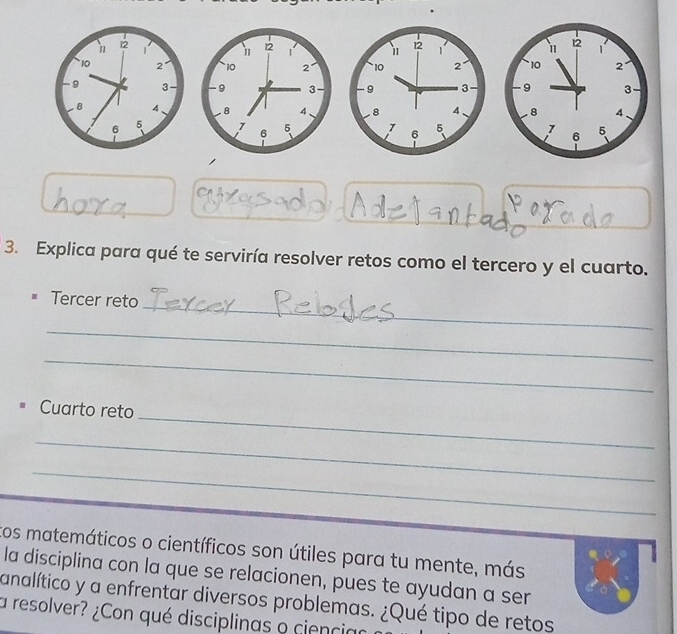 12 12 12 12
11 1 11 1 11 1 11 1
10 2 10 2 10 2 10 2
9 3 9 3 9 3 9 3
8 4 8 4 8 4 8 4
7 6 5 7 6 5 7 6 5 7 6 5
hora atrasado Adelantado Parado
3. Explica para qué te serviría resolver retos como el tercero y el cuarto.
▪ Tercer reto Tercer Relojes
▪ Cuarto reto
tos matemáticos o científicos son útiles para tu mente, más
la disciplina con la que se relacionen, pues te ayudan a ser
analítico y a enfrentar diversos problemas. ¿Qué tipo de retos
a resolver? ¿Con qué disciplinas o ciencias